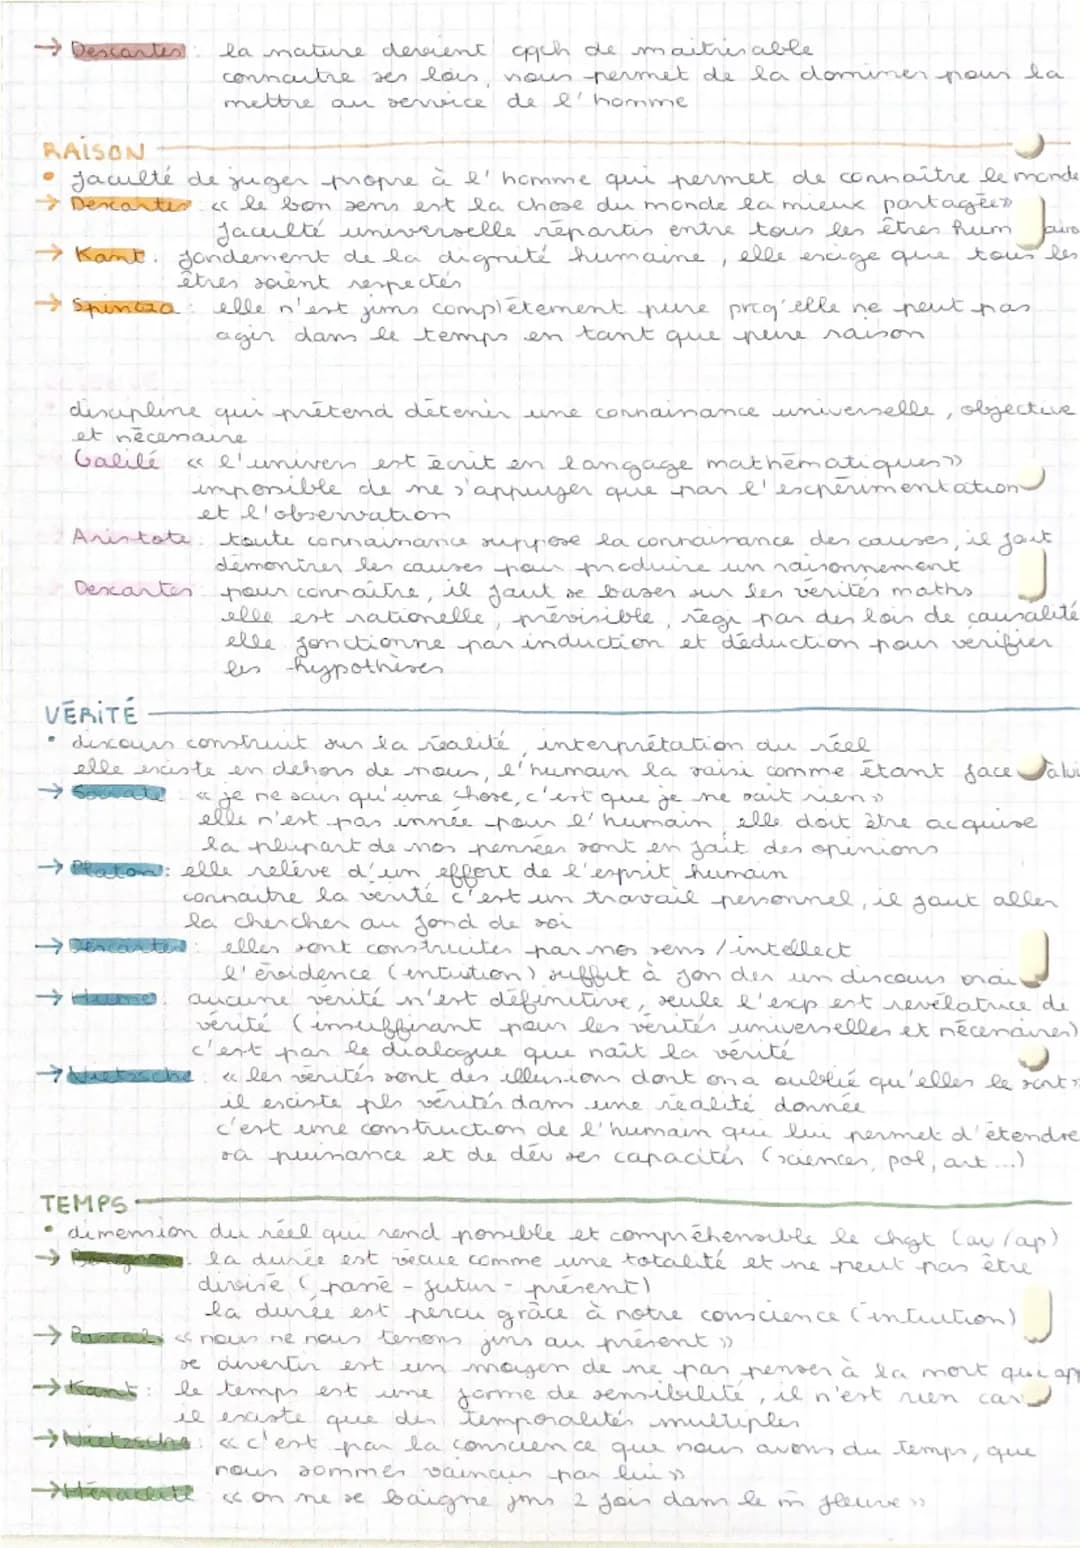 → Descartes : la nature devient qqch de maitrisable
connaitre ses lois, nous permet de la dominer pour la
mettre au service de l'homme
RAISON
• faculté de juger propre à l'homme qui permet de connaître le monde
→ Descartes « le bon sens est la chose du monde la mieux partagée »
faculté universelle répartis entre tous les êtres hum
→ Kant : fondement de la dignité humaine, elle exige que tous les
êtres soient respectés
→ Spinoza : elle n'est jms complètement pure prcq'elle ne peut pas
agir dans le temps en tant que pure raison
discipline qui prétend détenir une connaissance universelle, objective
et nécessaire
Galilé « l'univers est écrit en langage mathématiques »
impossible de ne s'appuyer que par l'expérimentation
et l'observation
Aristote : toute connaissance suppose la connaissance des causes, il faut
démontrer les causes pour produire un raisonnement
Descartes : pour connaître, il faut se baser sur les vérités maths
elle est rationelle, prévisible, régi par des lois de causalité
elle fonctionne par induction et déduction pour vérifier
les hypothèses
VÉRITÉ
• discours construit sur la réalité, interprétation du réel
elle existe en dehors de nous, l'humain la saisi comme étant face à lui
→ Socrate : « je ne sais qu'une chose, c'est que je ne sait rien »
elle n'est pas innée pour l'humain, elle doit être acquise
la plupart de nos pensées sont en fait des opinions
→ Platon : elle relève d'un effort de l'esprit humain
connaitre la vérité c'est un travail personnel, il faut aller
la chercher au fond de soi
→ Descartes : elles sont construites par nos sens / intellect
l'évidence (intuition) suffit à fonder un discours vrai
→ Hume : aucune vérité n'est définitive, seule l'exp est revélatrice de
vérité (insuffisant pour les vérités universelles et nécessaires)
c'est par le dialogue que naît la vérité
→ Nietzsche : « les vérités sont des illusions dont on a oublié qu'elles le sont »
il existe pls vérités dans une réalité donnée
c'est une construction de l'humain qui lui permet d'étendre
sa puissance et de dév ses capacités (sciences, pol, art...)
TEMPS
• dimension du réel qui rend possible et compréhensible le chgt (av/ap)
→ Bergson : la durée est vécue comme une totalité et ne peut pas être
divisé (passé - futur - présent)
la durée est percu grâce à notre conscience (intuition)
→ Pascal « nous ne nous tenons jms au présent »
se divertir est un moyen de ne pas penser à la mort qui app
→ Kant : le temps est une forme de sensibilité, il n'est rien car
il existe que des temporalités multiples
→ Nietzsche : « c'est par la conscience que nous avons du temps, que
nous sommes vaincus par lui »
→ Héraclite « on ne se baigne jms 2 fois dans le m̂ fleuve »